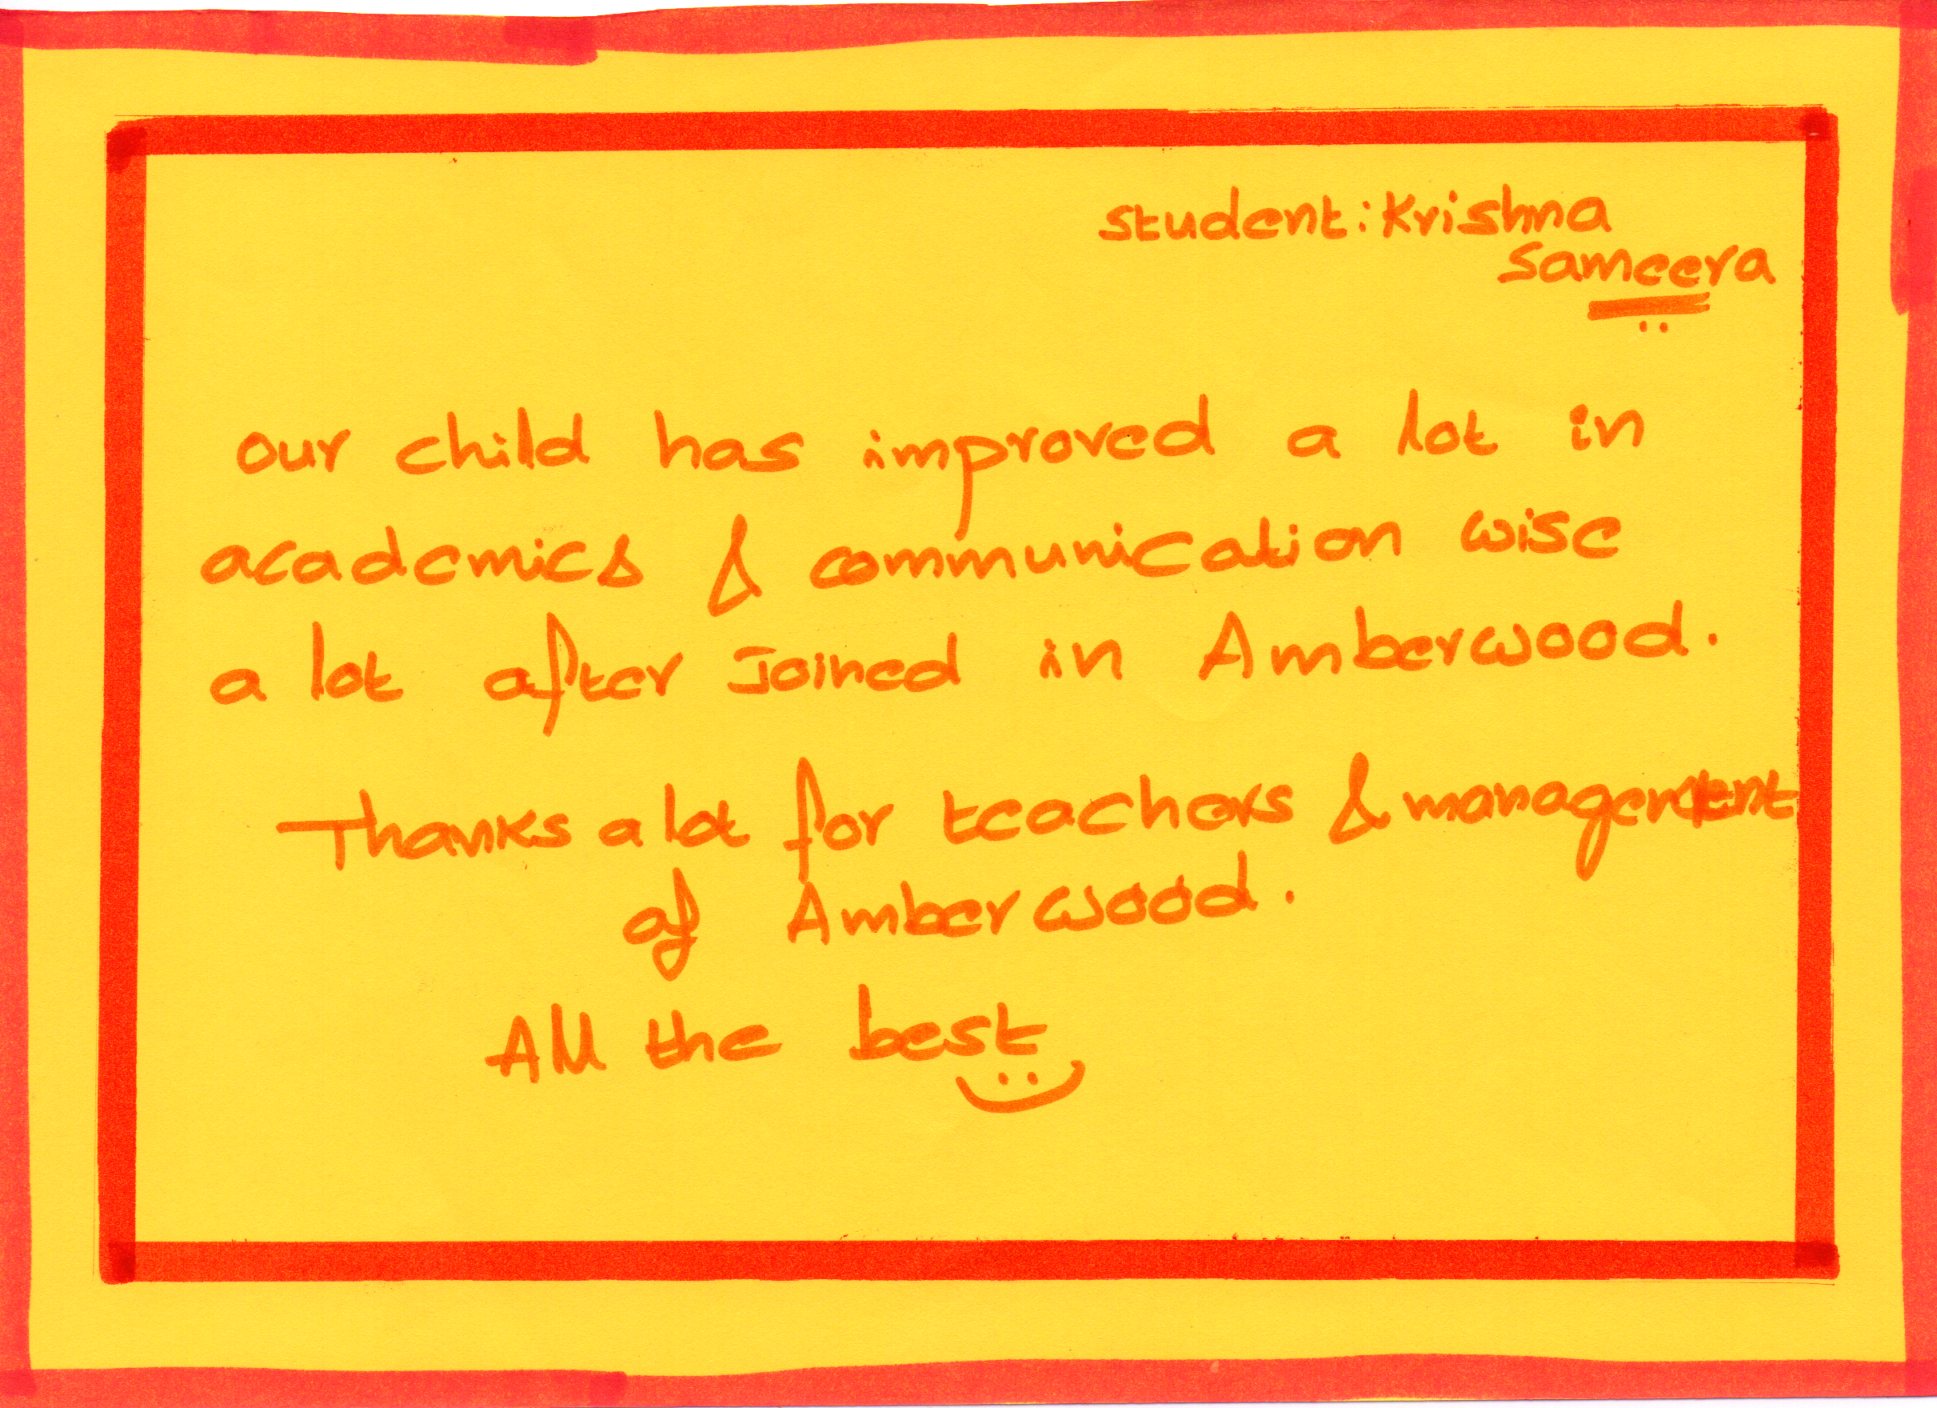 student: Krishna
Sameera
our child has improved a lot in
academics & communication wise
a lot after Joined in Amberwood.
Thanks a lot for teachers & management
of Amberwood.
All the best